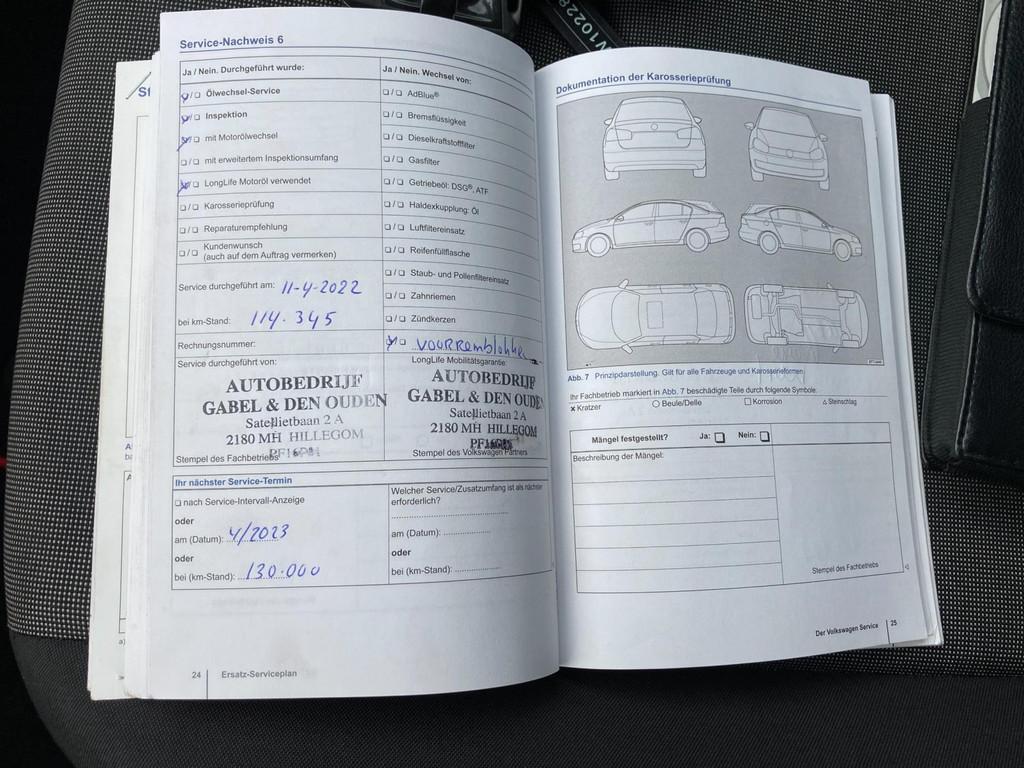 V10228
St
Service-Nachweis 6
Ja / Nein. Durchgeführt wurde:
Ölwechsel-Service
Inspektion
mit Motorölwechsel
mit erweitertem Inspektionsumfang
LongLife Motoröl verwendet
Karosserieprüfung
Reparaturempfehlung
Kundenwunsch
(auch auf dem Auftrag vermerken)
Service durchgeführt am: 11-4-2022
bei km-Stand: 114.345
Rechnungsnummer:
Service durchgeführt von:
AUTOBEDRIJF
GABEL & DEN OUDEN
Satellietbaan 2 A
2180 MH HILLEGOM
Stempel des Fachbetriebs
Ja / Nein. Wechsel von:
AdBlue®
Bremsflüssigkeit
Dieselkraftstofffilter
Gasfilter
Getriebeöl: DSG®, ATF
Haldexkupplung: Öl
Luftfiltereinsatz
Reifenfüllflasche
Staub- und Pollenfiltereinsatz
Zahnriemen
Zündkerzen
LongLife Mobilitätsgarantie
AUTOBEDRIJF
GABEL & DEN OUDEN
Satellietbaan 2 A
2180 MH HILLEGOM
Stempel des Volkswagen Partners
Ihr nächster Service-Termin
nach Service-Intervall-Anzeige
oder
am (Datum): 4/2023
oder
bei (km-Stand): 130.000
Welcher Service/Zusatzumfang ist als nächster
erforderlich?
am (Datum):
oder
bei (km-Stand):
24 Ersatz-Serviceplan
Dokumentation der Karosserieprüfung
Abb. 7 Prinzipdarstellung. Gilt für alle Fahrzeuge und Karosserieformen
Ihr Fachbetrieb markiert in Abb. 7 beschädigte Teile durch folgende Symbole:
x Kratzer ○ Beule/Delle □ Korrosion △ Steinschlag
Mängel festgestellt? Ja: Nein:
Beschreibung der Mängel:
Stempel des Fachbetriebs
Der Volkswagen Service 25